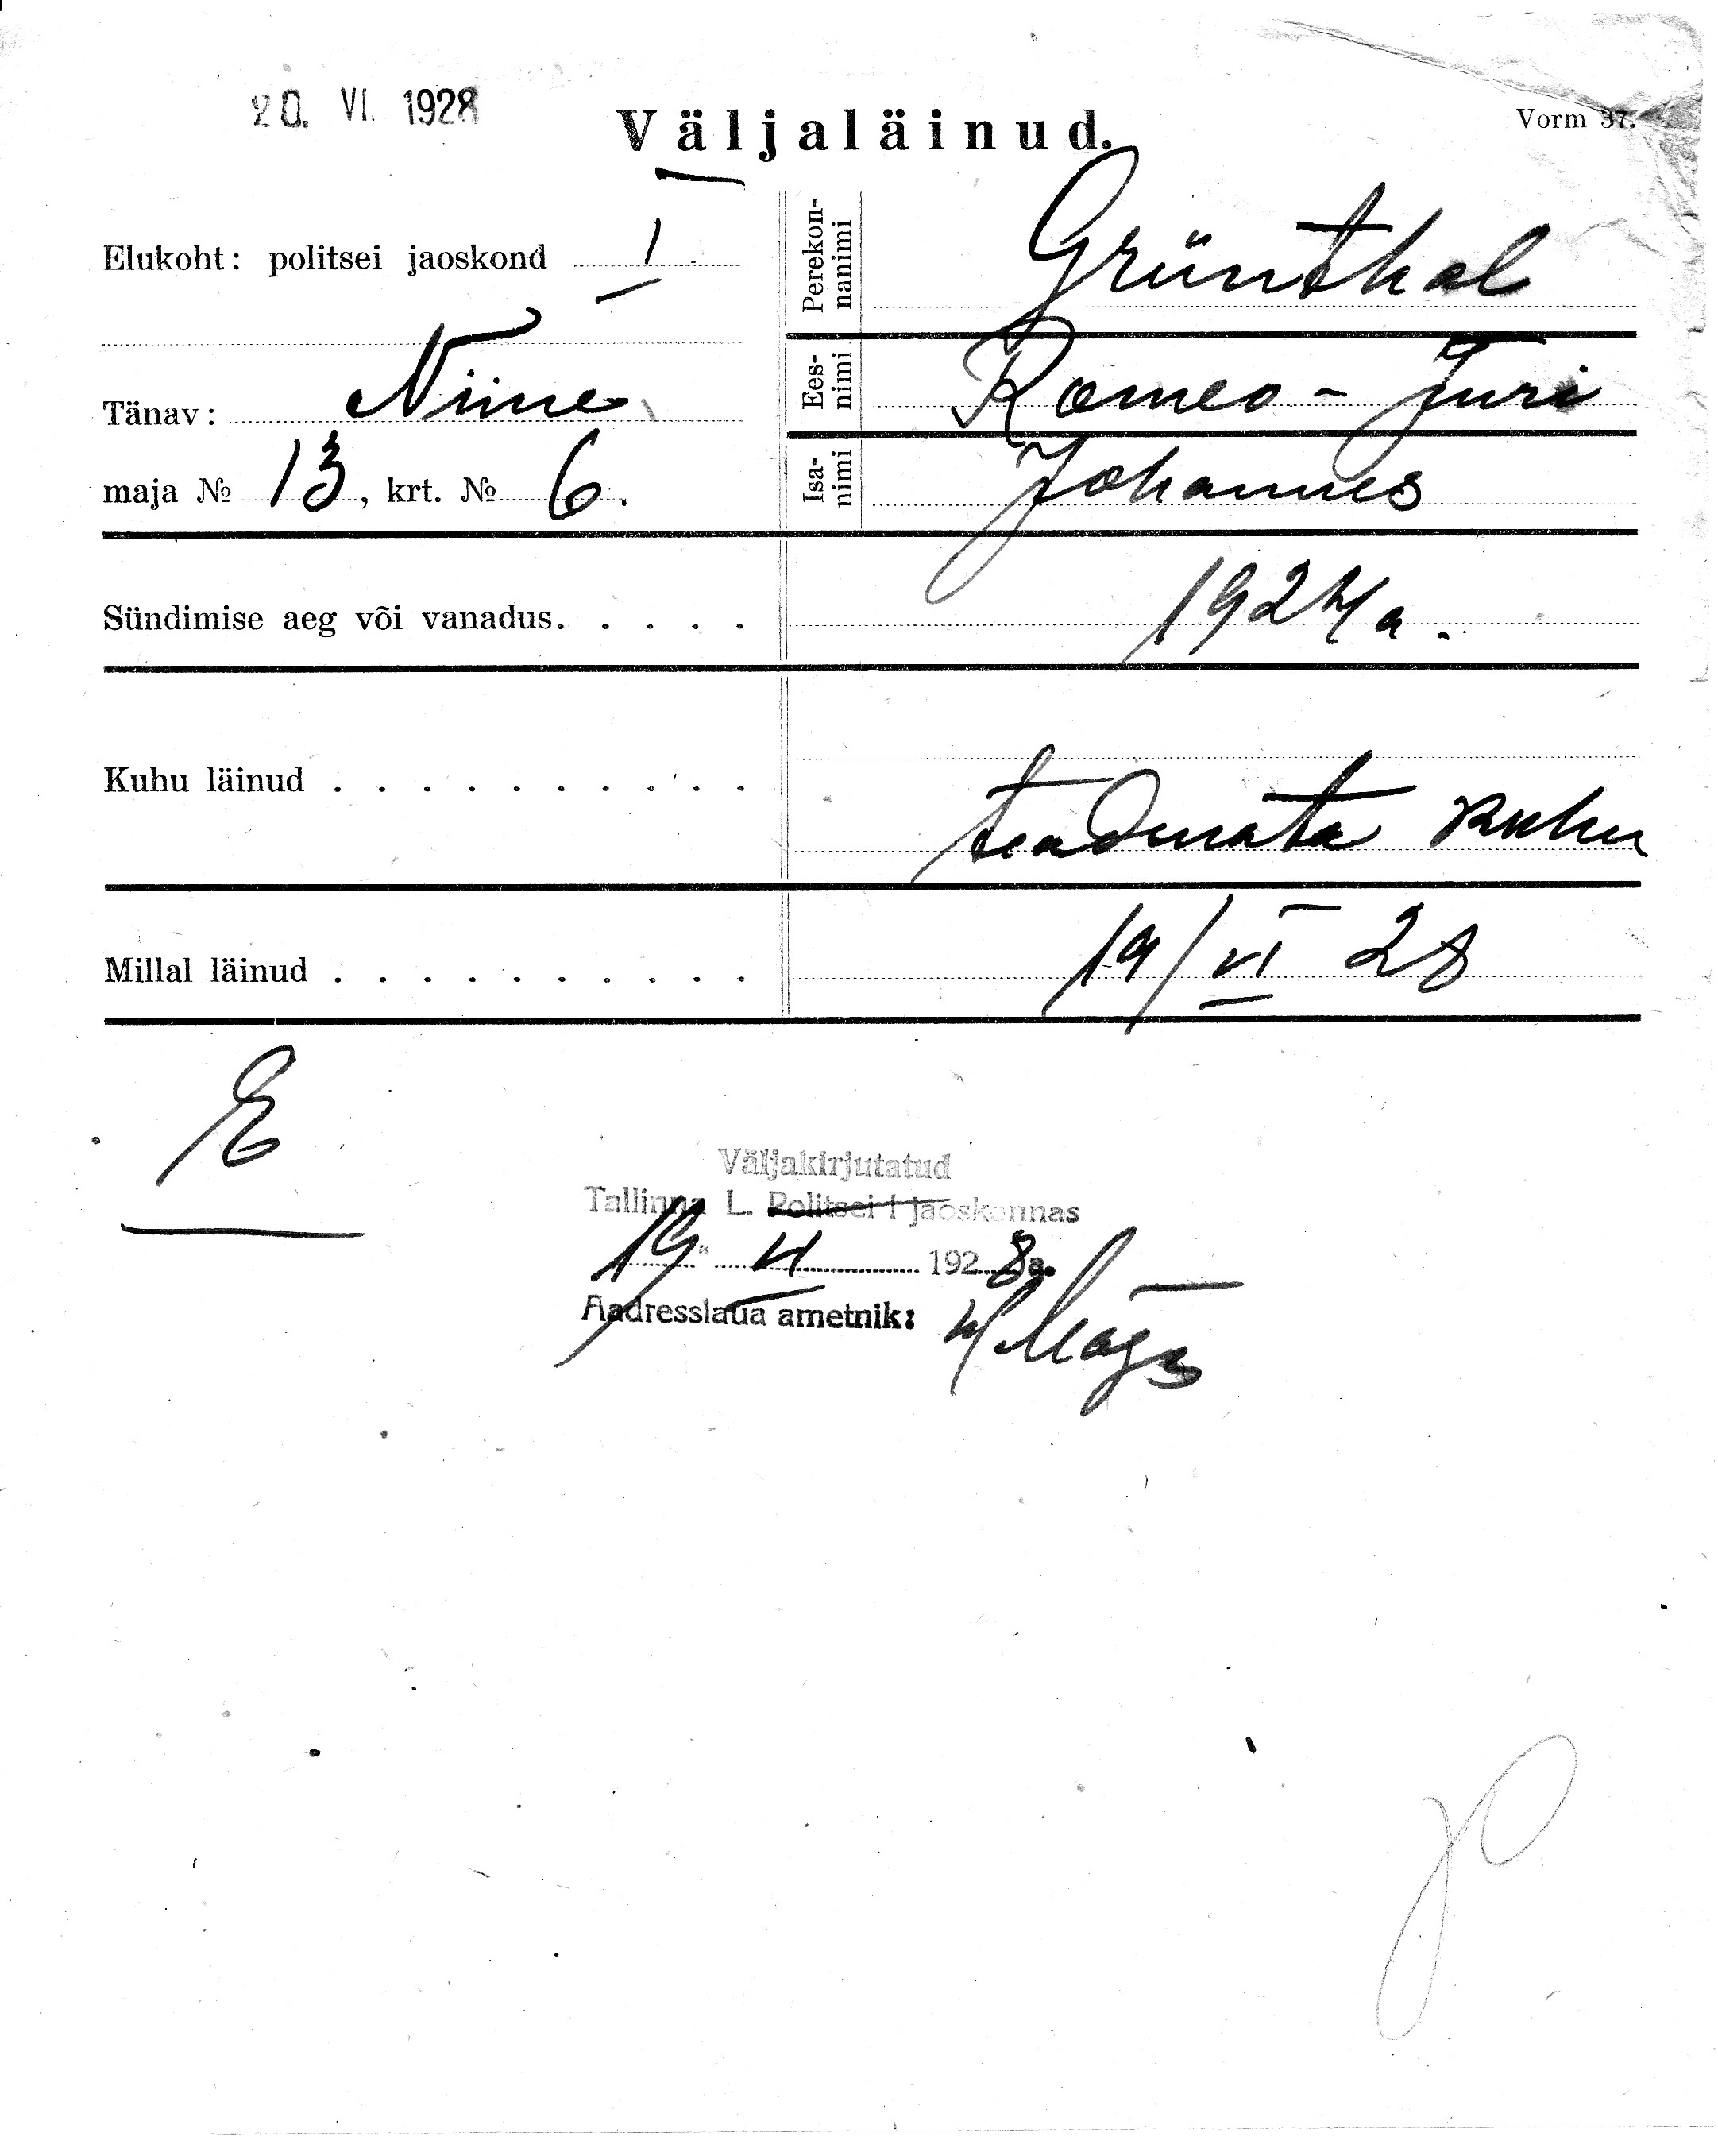 20. VI. 1928
Väljaläinud.
Vorm 37.
Elukoht: politsei jaoskond I.
Tänav: Niine
maja № 13, krt. № 6.
Perekon-
nanimi
Grünthal
Ees-
nimi
Romeo - Juri
Isa-
nimi
Johannes
Sündimise aeg või vanadus. . . . . 1924 a.
Kuhu läinud . . . . . . . . . . teadmata kuhu
Millal läinud . . . . . . . . . . 19/VI 28
E
Väljakirjutatud
Tallinna L. Politsei I jaoskonnas
19 " VI 1928 a.
Aadresslaua ametnik: